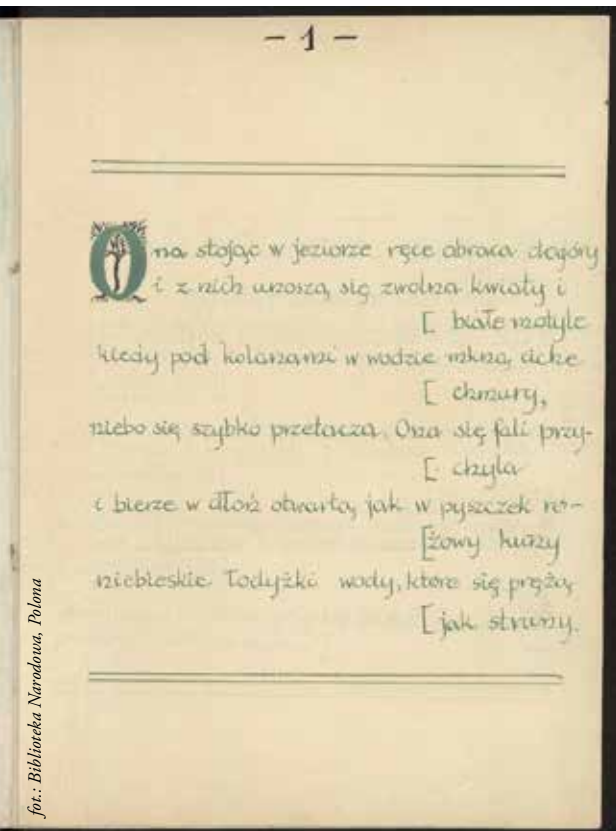 - 1 -
Ona stojąc w jeziorze ręce obraca dogóry
i z nich unoszą się zwolna kwiaty i
[ białe motyle
kiedy pod kolanami w wodzie mkną ciche
[ chmury,
niebo się szybko przetacza. Ona się fali przy-
[ chyla
i bierze w dłoń otwartą, jak w pyszczek ro-
[żowy kuny
niebieskie łodyżki wody, które się prężą,
[ jak struny.
fot.: Biblioteka Narodowa, Polona